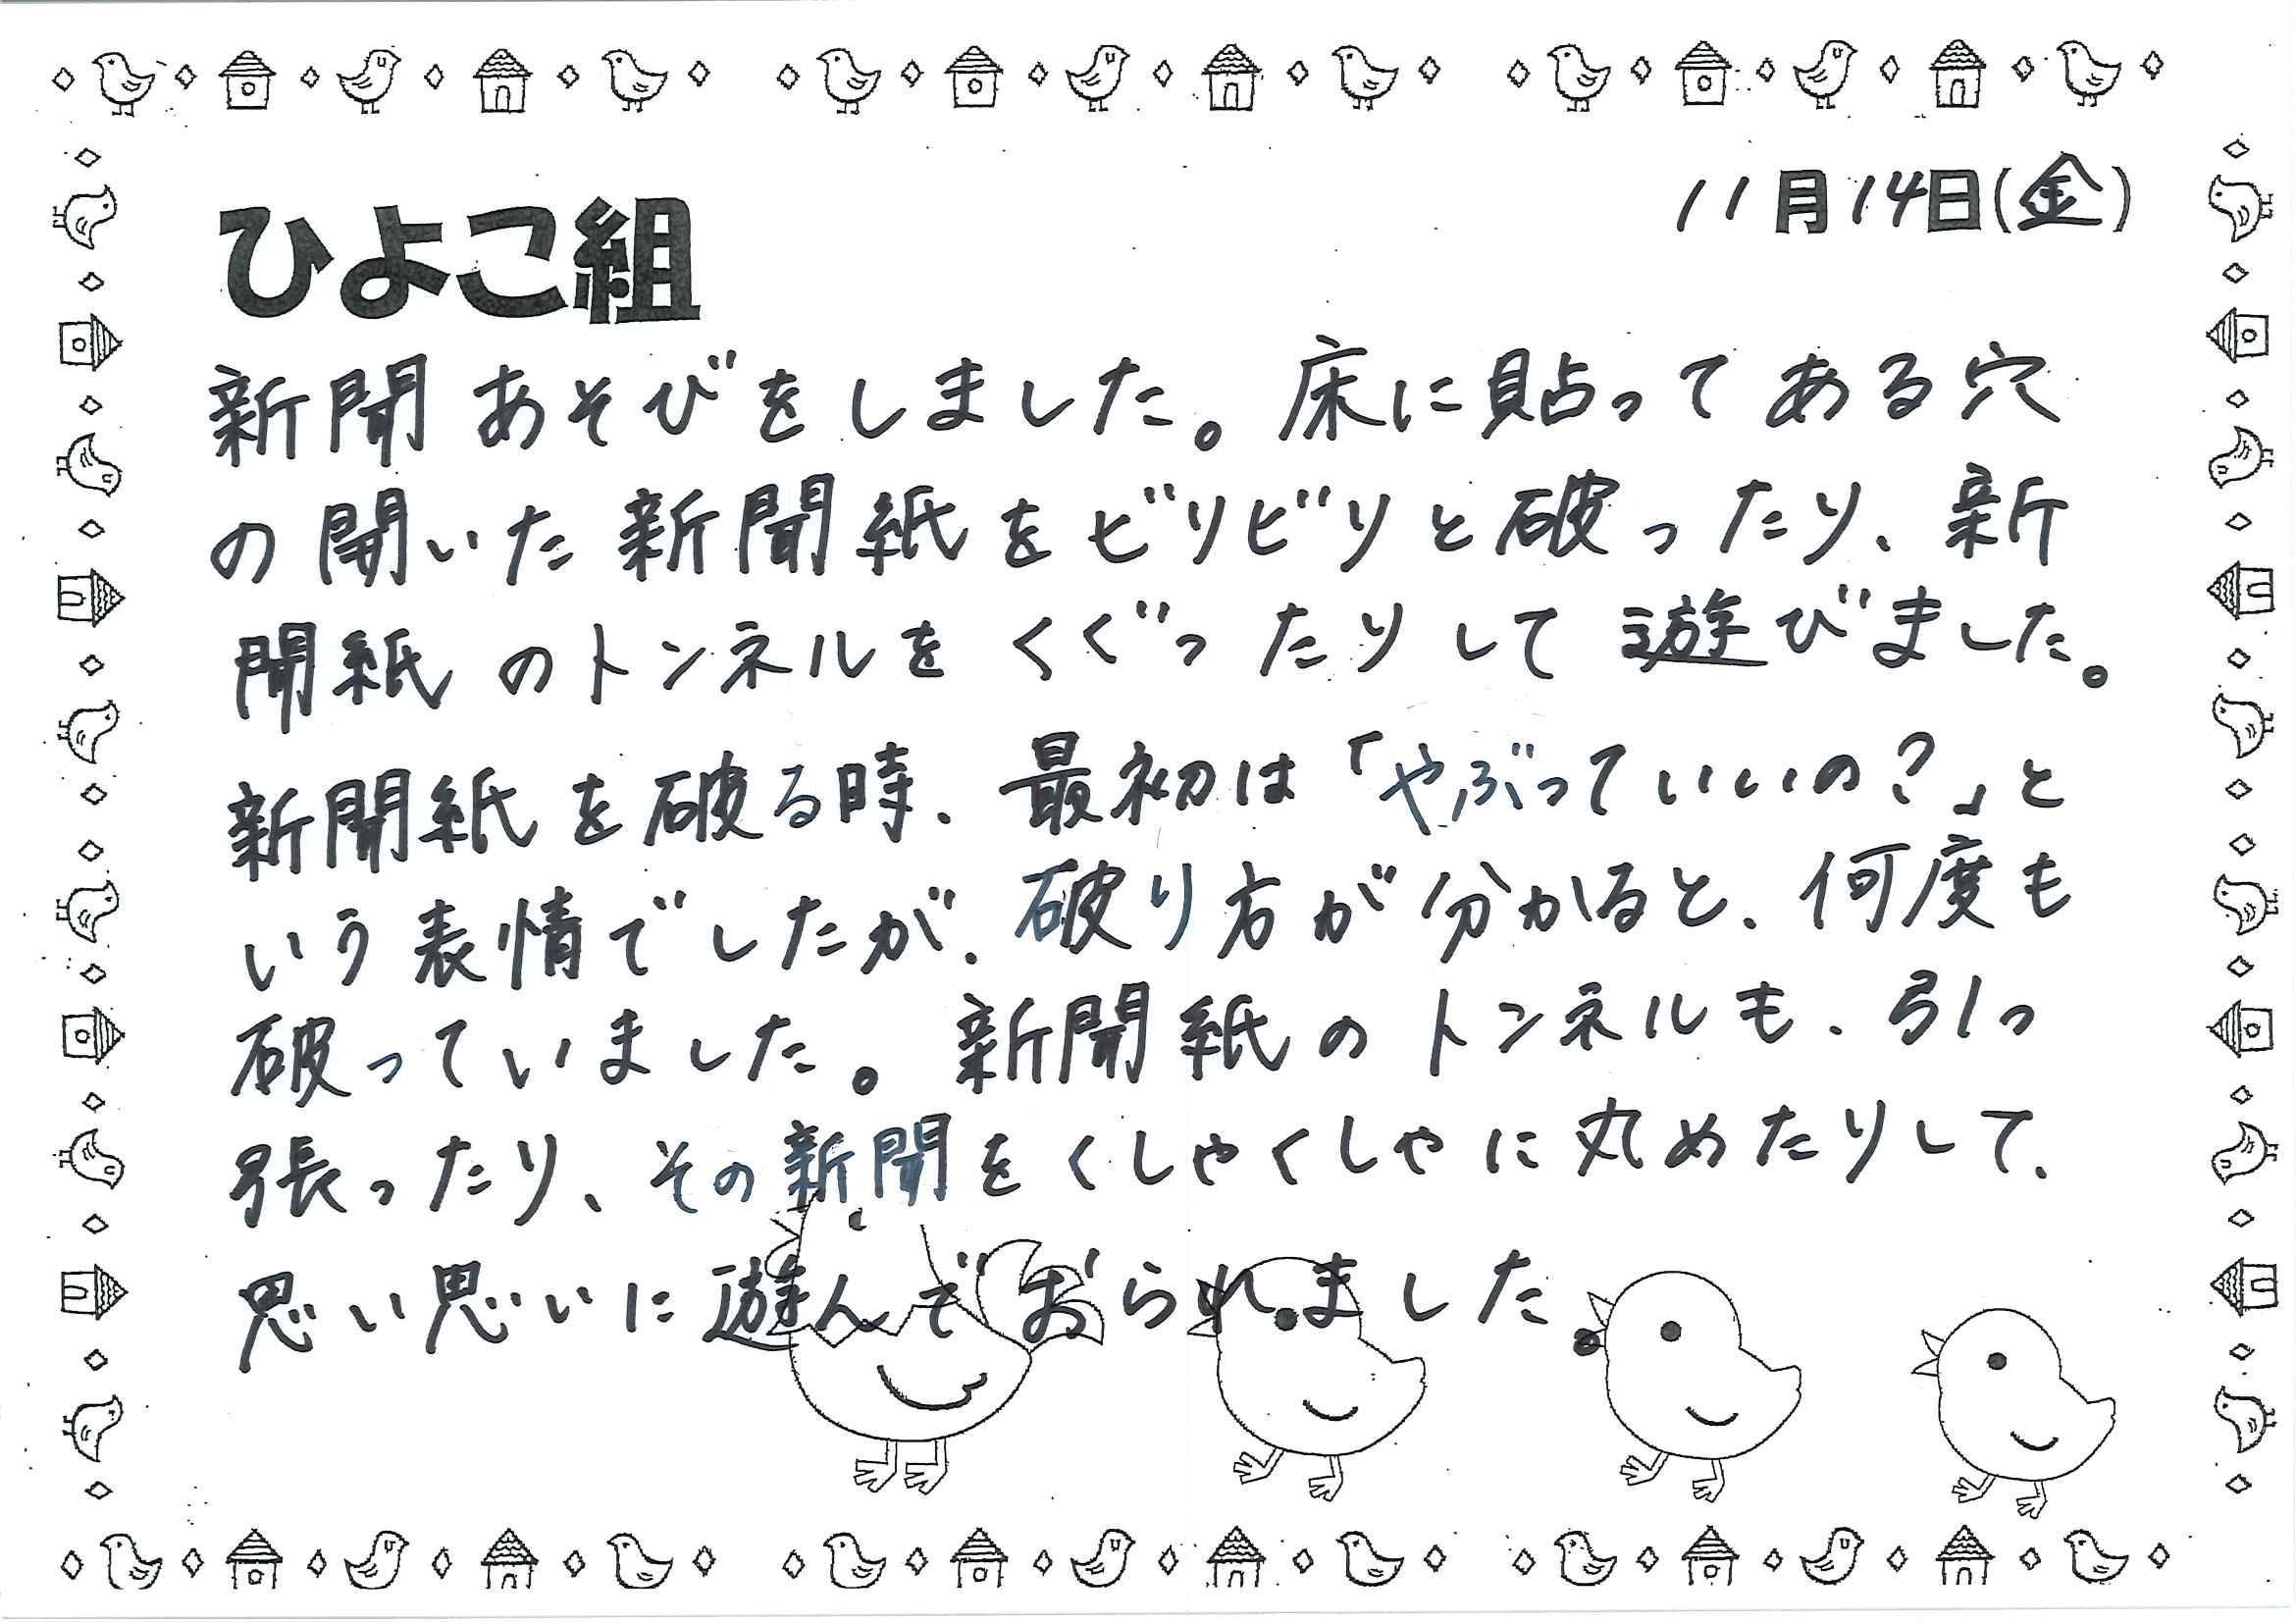 11月14日(金)
ひよこ組
新聞あそびをしました。床に貼ってある穴
の開いた新聞紙をビリビリと破ったり、新
聞紙のトンネルをくぐったりして遊びました。
新聞紙を破る時、最初は「やぶっていいの?」と
いう表情でしたが、破り方が分かると、何度も
破っていました。新聞紙のトンネルも、引っ
張ったり、その新聞をくしゃくしゃに丸めたりして、
思い思いに遊んでおられました。